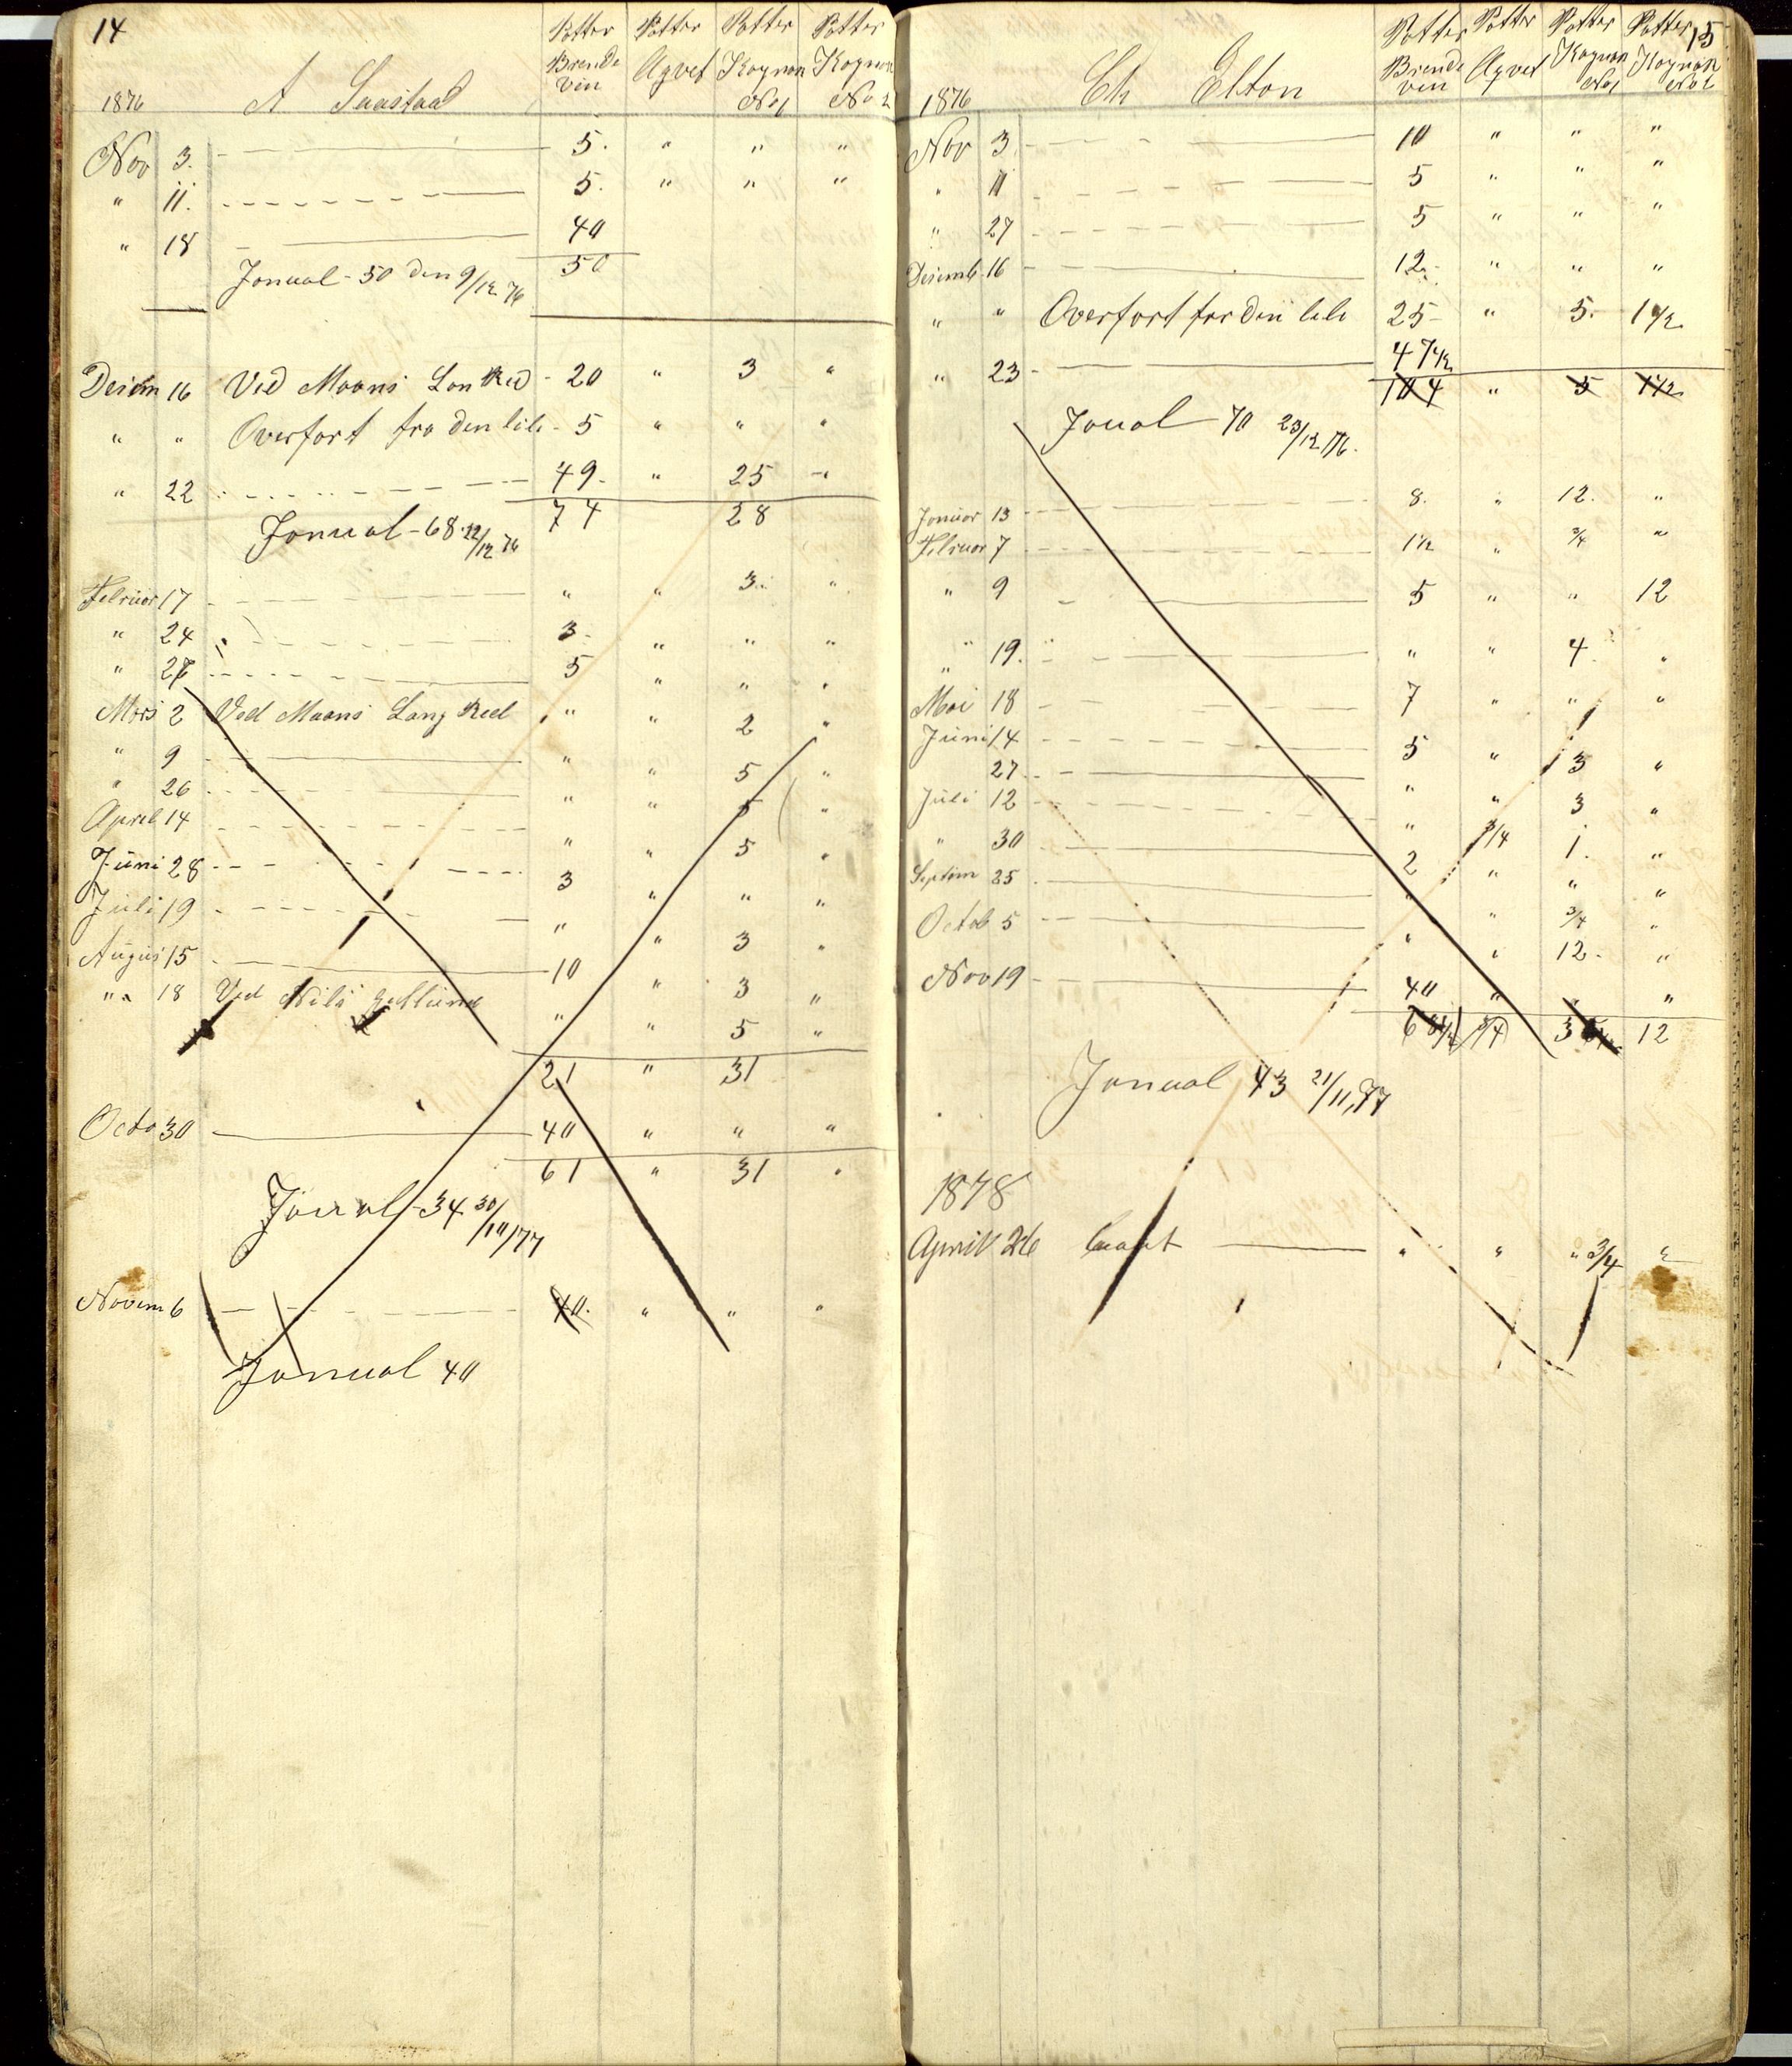 14
Potter Potter Potter Potter
Brende Aqvet Kognon Kognon
vin No 1 No 2
1876 A Saastad
Nov 3. 5. " " "
" 11. 5. " " "
" 18 40
50
Jonual - 50 den 9/12 76
Desem 16 Ved Moons Lon Red - 20 " 3 "
" " Overfort fra den lile - 5 " " "
" 22 49. " 25 "
74 28
Jonual - 68. 22/12 76
Februor 17 " " 3. "
" 24 3. " " "
" 27 5 " " "
Mars 2 Ved Moons Lang Red " " 2 "
" 9 " " 5 "
" 26 " " 5 "
April 14 " " 5 "
Juni 28 3 " " "
Juli 19 " " 3 "
Augus 15 10 " 3 "
" 18 Ved Nils " " 5 "
21 " 31
Octo 30 40 " " "
61 " 31 "
Joural - 34 30/10/77
Novem 6 40. " " "
Jonual 40
15
Potter Potter Potter Potter
Brende Aqvet Kognon Kognon
vin No 1 No 2
1876 Ch Elton
Nov 3 10 " " "
" 11 5 " " "
" 27 5 " " "
Desemb 16 12. " " "
" " Overfort for den lile 25 " 5. 1 1/2
" 23 47 1/2
104 " 5 1 1/2
Joual 70 23/12 76.
Jonuor 13 8. " 12. "
Februor 7 1 1/2 " 3/4 "
" 9 5 " " 12
" 19. " " 4. "
Mai 18 7 " " "
Juni 14 5 " 3 "
27 " " 3 "
Juli 12 " 3/4 1. "
" 30 2 " " "
Septem 25 " " 3/4 "
Octob 5 " " 12. "
Nov 19 40 " " "
3/4 12
Jonual 43 21/11, 77
1878
April 26 " " " 3/4 "